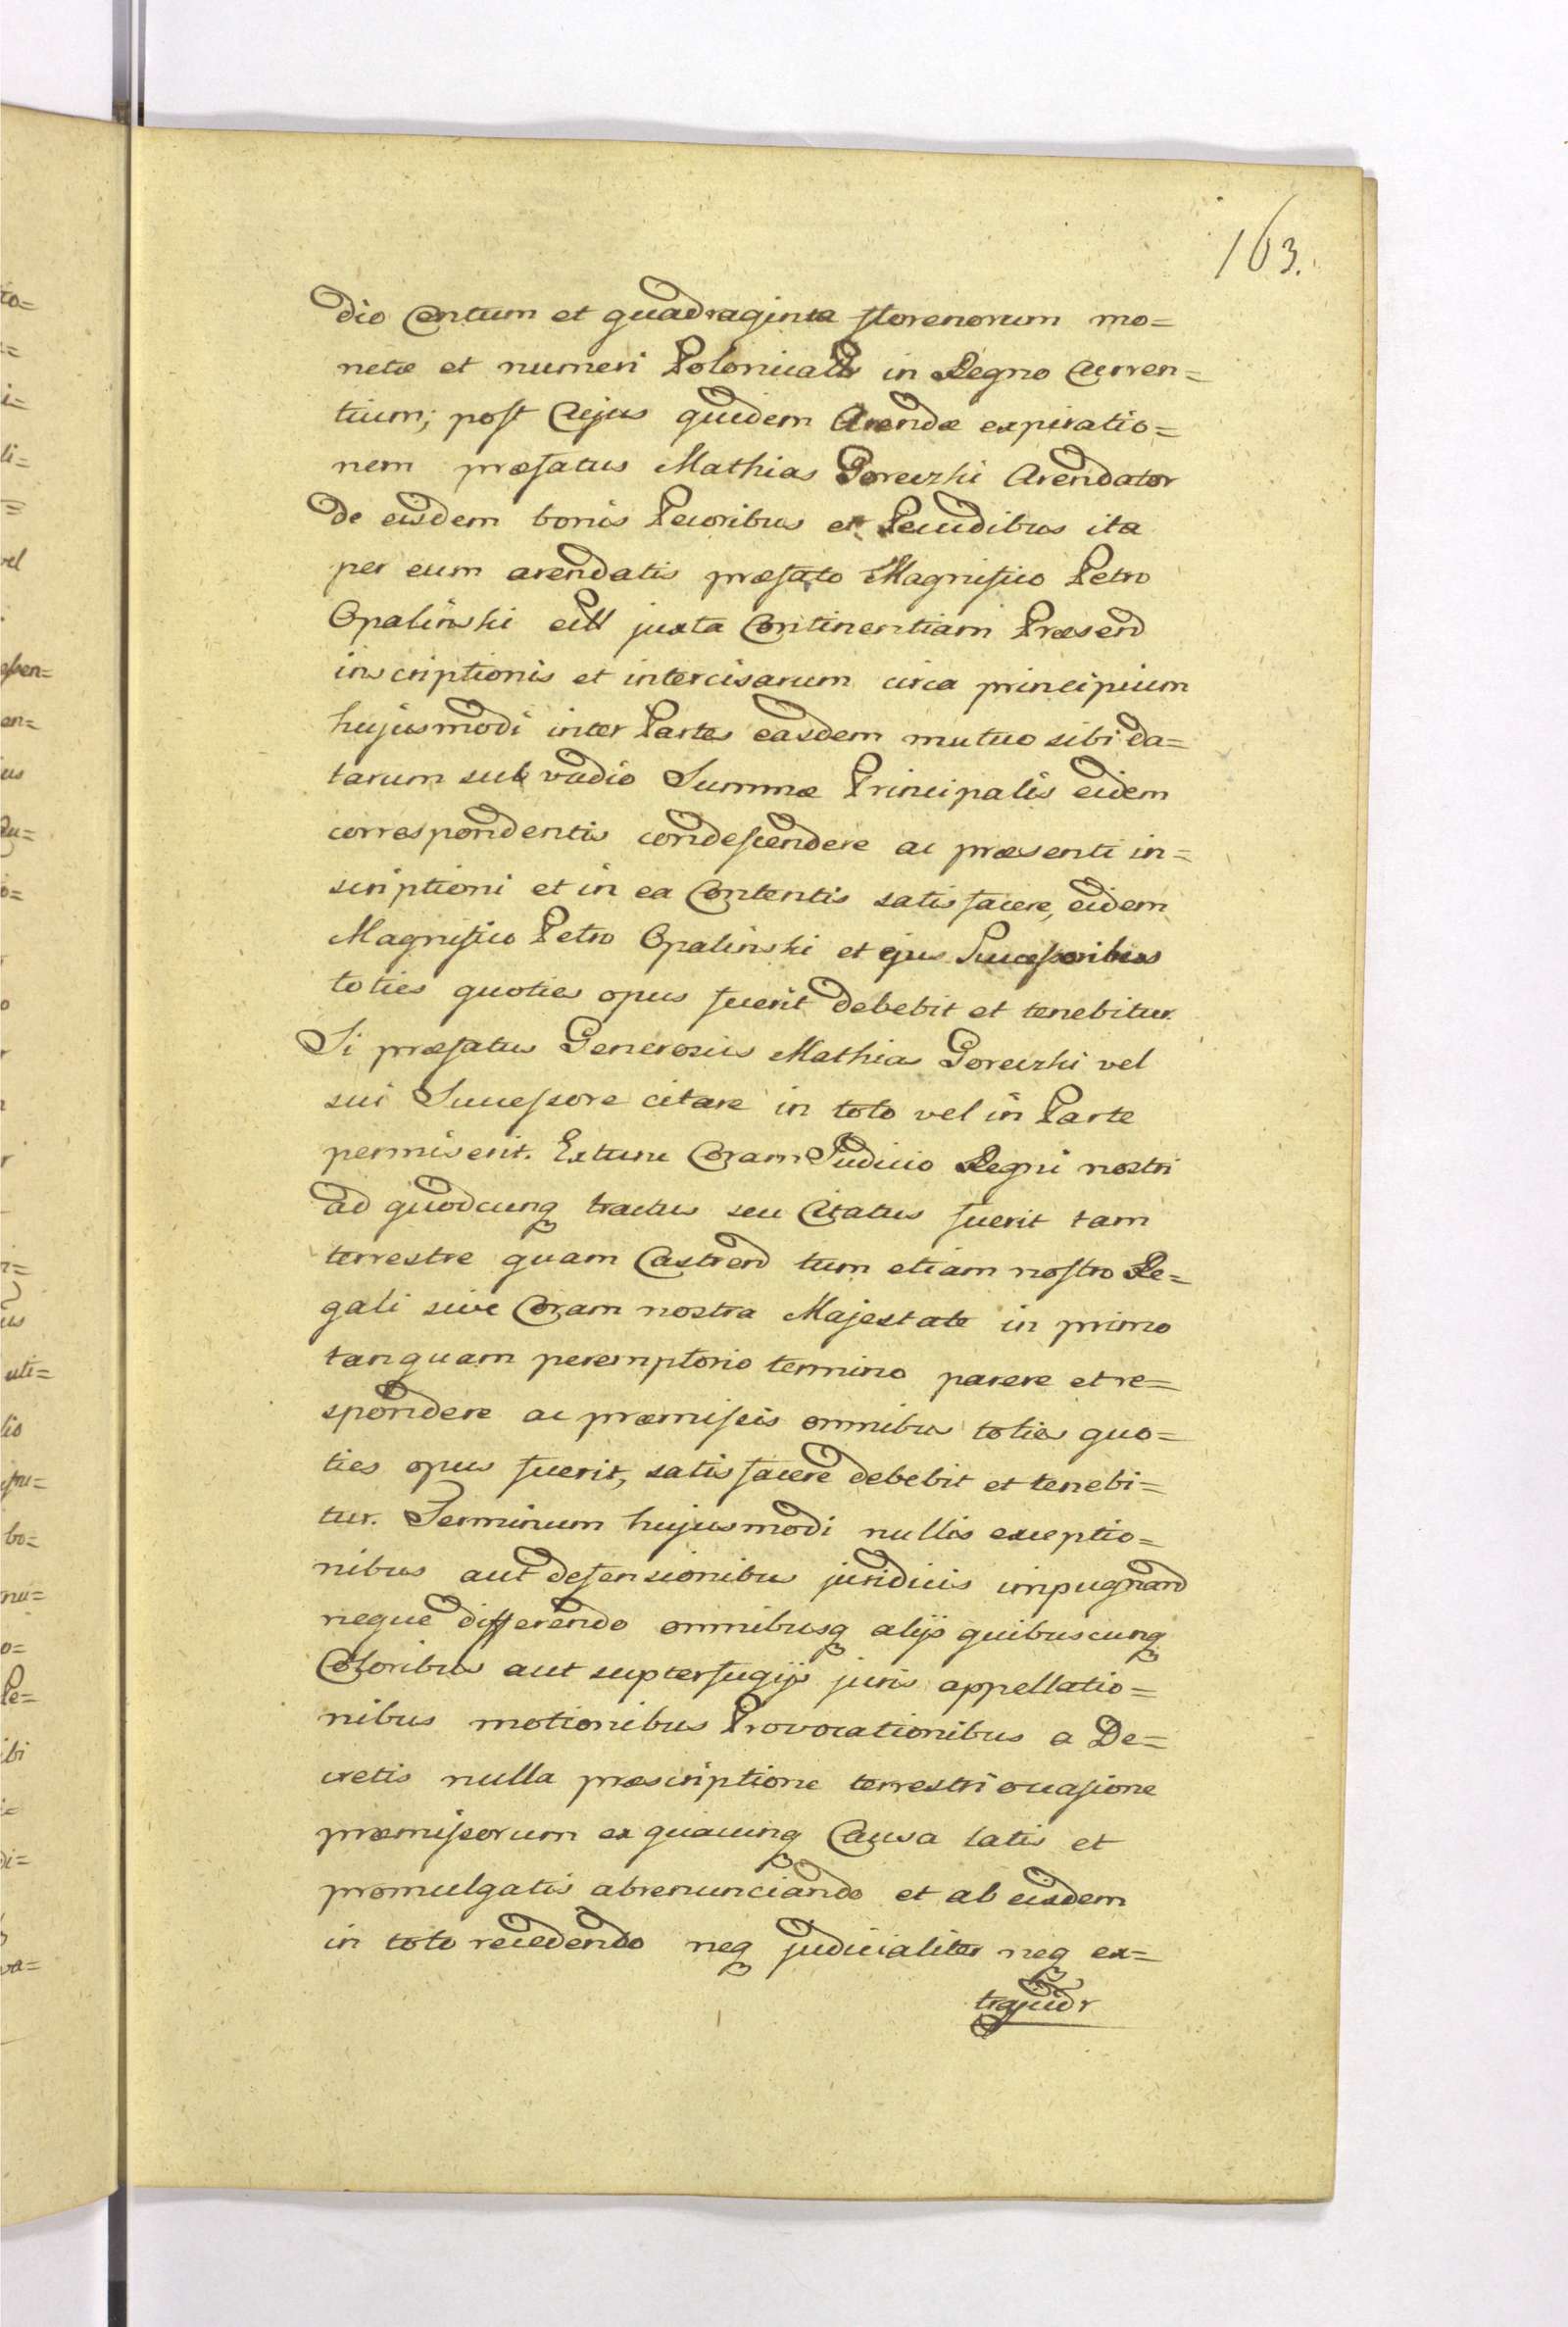 163.
dio Centum et quadraginta florenorum mo=
netæ et numeri Polonicalis in Regno Curren=
tium; post Cujus quidem Arendæ expiratio=
nem præfatus Mathias Goreczki Arendator
de eisdem bonis Pecoribus et Pecudibus ita
per eum arendatis præfato Magnifico Petro
Opalinski juxta Continentiam Præsend
inscriptionis et intercisarum circa principium
hujusmodi inter Partes easdem mutuo sibi da=
tarum sub vadio Summæ Principalis eidem
correspondentis condescendere ac præsenti in=
scriptioni et in ea Contentis satisfacere, eidem
Magnifico Petro Opalinski et ejus Successoribus
toties quoties opus fuerit debebit et tenebitur.
Si præfatus Generosus Mathias Goreczki vel
sui Successore citare in toto vel in Parte
permiserit. Extunc Coram Judicio Regni nostri
ad quodcunq tractus seu Citatus fuerit tam
terrestre quam Castrend tum etiam nostro Re=
gali sive Coram nostra Majestate in primo
tanquam peremptorio termino parere et re=
spondere ac præmissis omnibus toties quo=
ties opus fuerit, satisfacere debebit et tenebi=
tur. Terminum hujusmodi nullis exceptio=
nibus aut defensionibus juridicis impugnand
neque differendo omnibusq alijs quibuscunq
Coloribus aut supterfugijs juris appellatio=
nibus motionibus Provocationibus a De=
cretis nulla præscriptione terrestri occasione
præmissorum ex quacunq Causa latis et
promulgatis abrenunciando et ab eisdem
in toto recedendo neq judicialiter neq ex=
trajudr